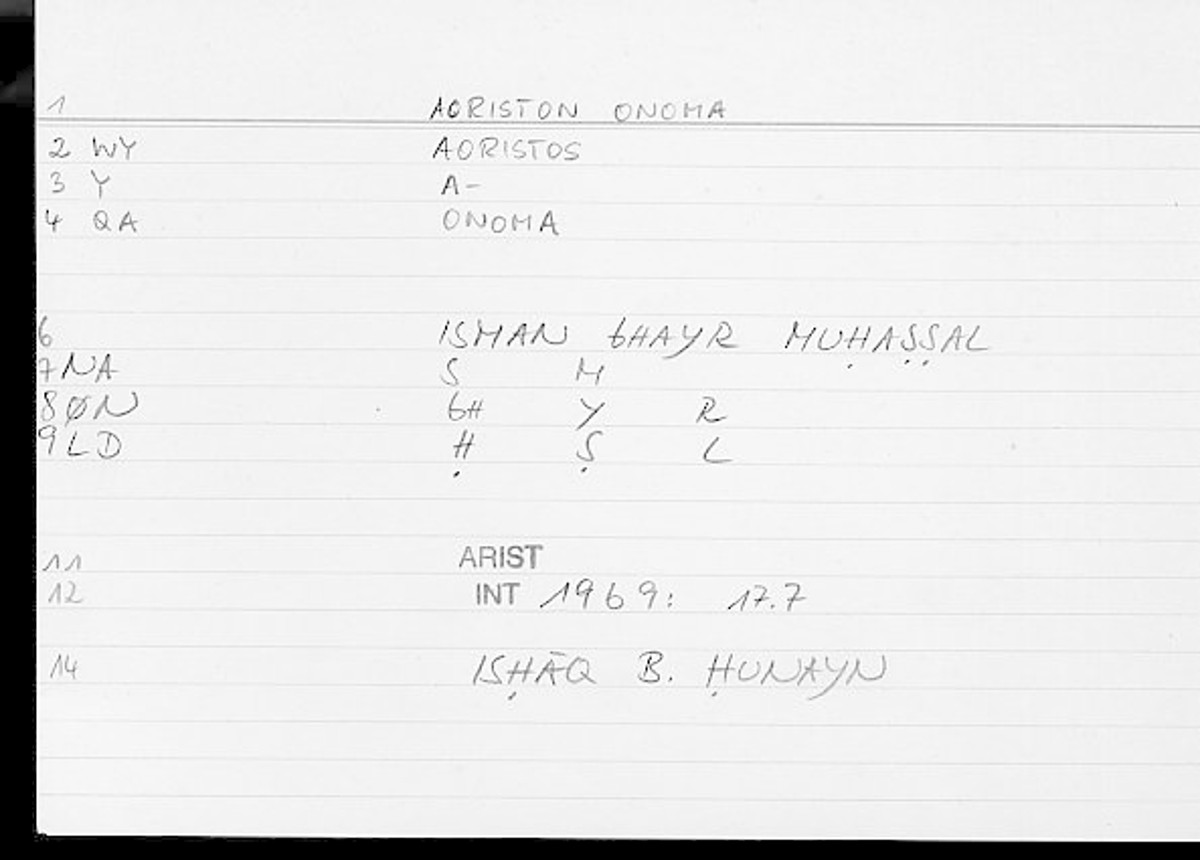 1 AORISTON ONOMA
2 WY AORISTOS
3 Y A-
4 QA ONOMA
6 ISMAN GHAYR MUḤAṢṢAL
7 NA S M
8 ØN GH Y R
9 LD Ḥ Ṣ L
11 ARIST
12 INT 1969: 17.7
14 ISḤĀQ B. ḤUNAYN